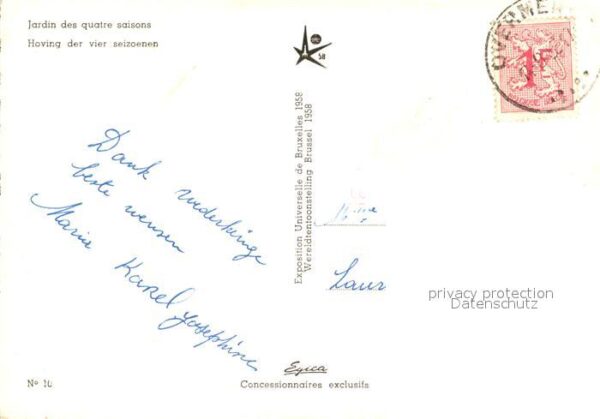 Jardin des quatre saisons
Hoving der vier seizoenen
58
1F
Exposition Universelle de Bruxelles 1958
Wereldtentoonstelling Brussel 1958
Dank wederkeerige
beste wensen
Maria Karel Josephine
Laur
privacy protection
Datenschutz
Egica
Nº 10
Concessionnaires exclusifs